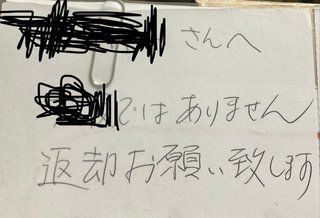 さんへ
ではありません
返却お願い致します